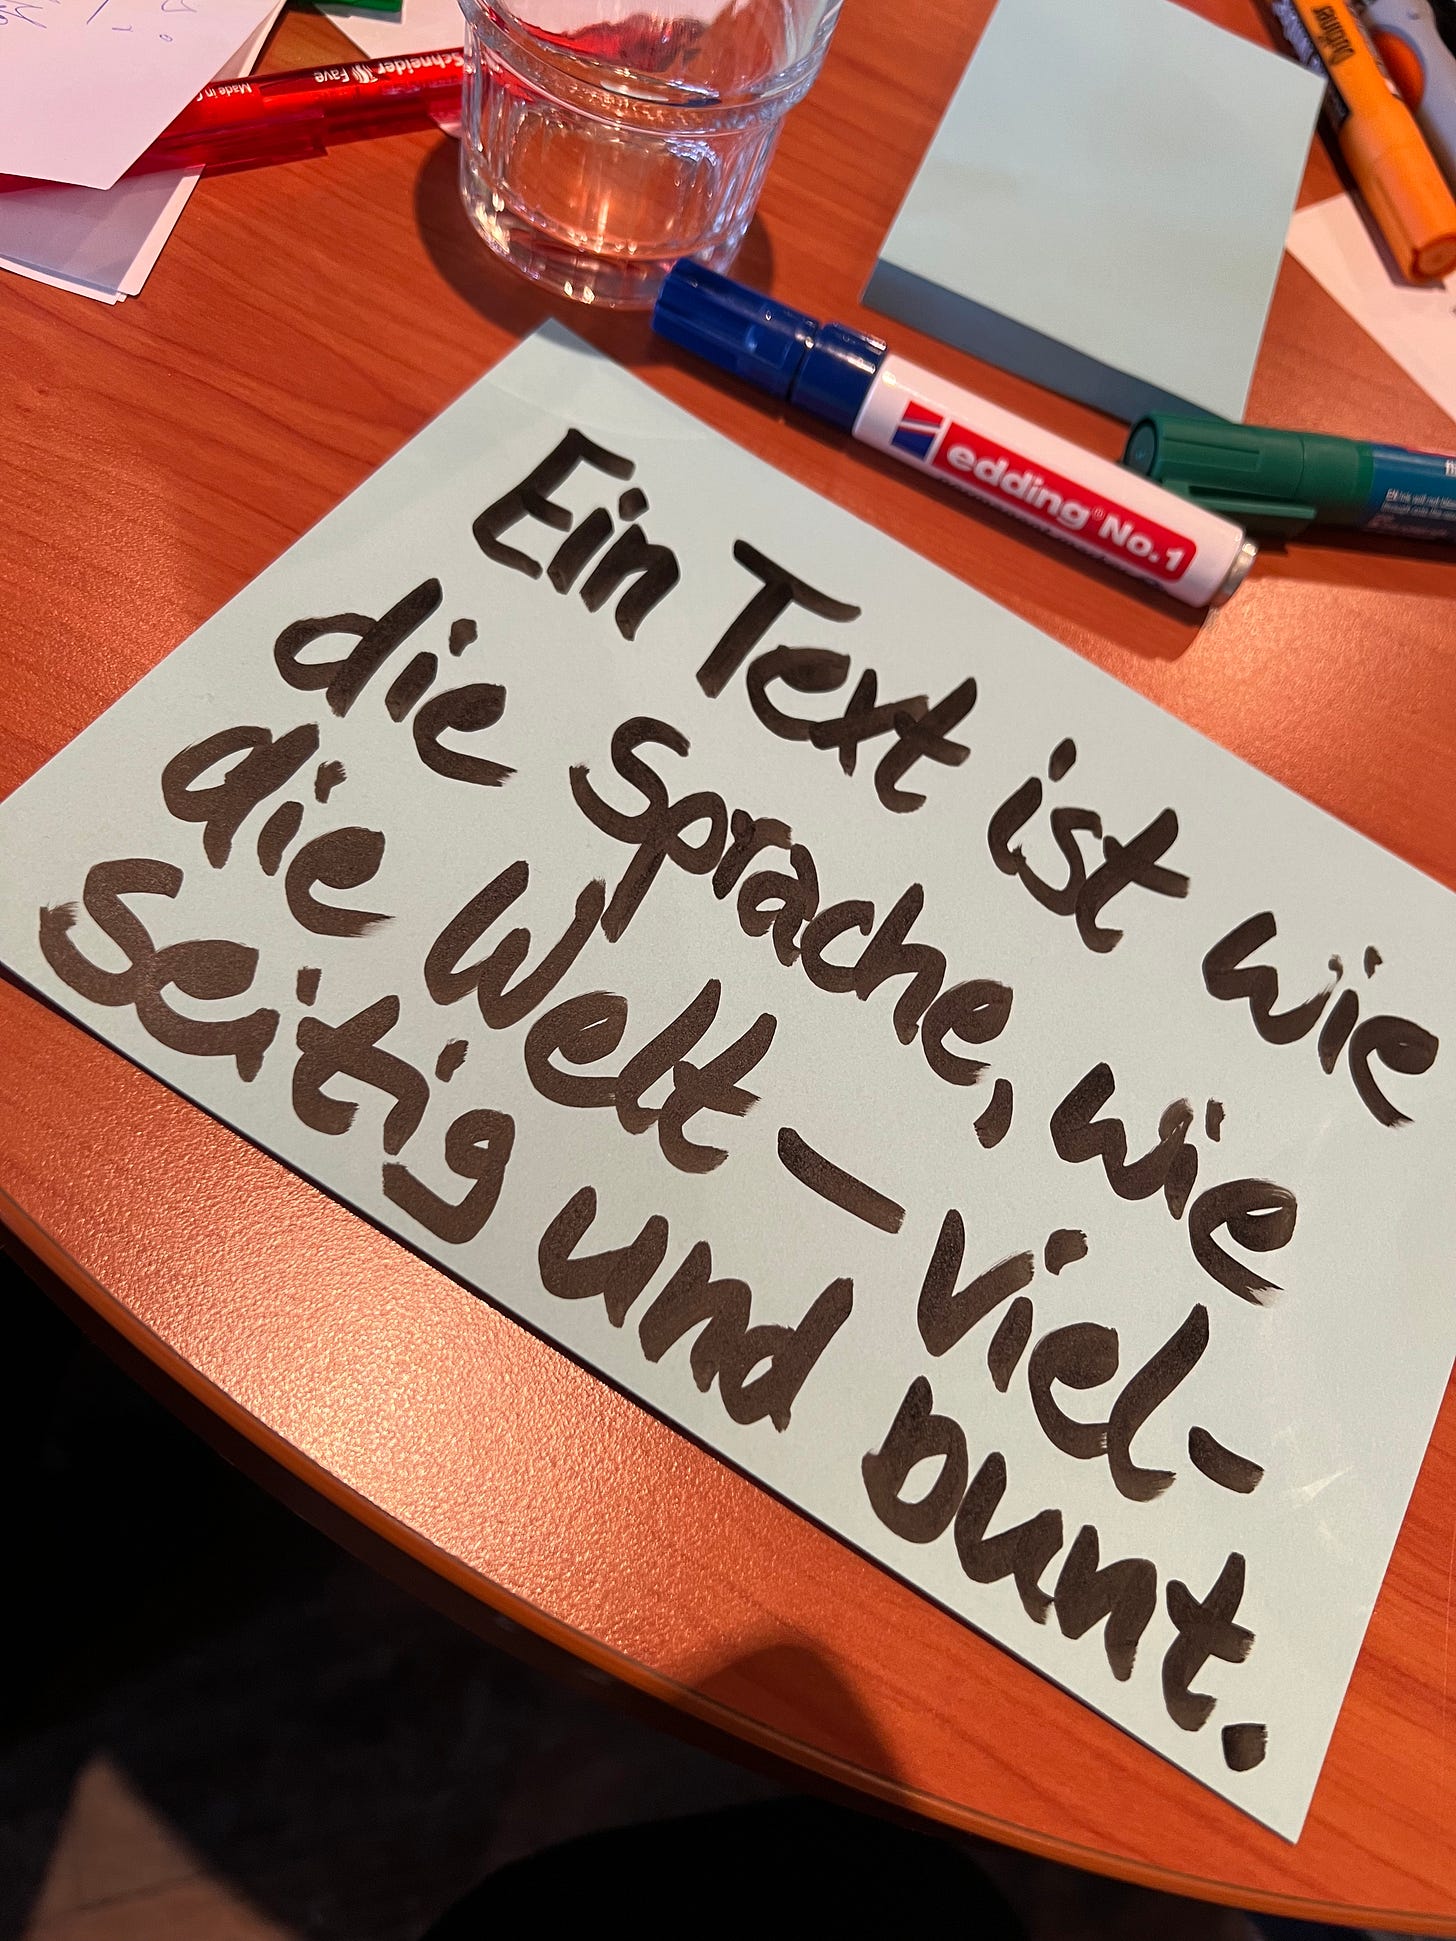 Schneider Fave
Made in
Dufiner
edding® No.1
Ein Text ist wie
die Sprache, wie
die Welt – viel-
seitig und bunt.